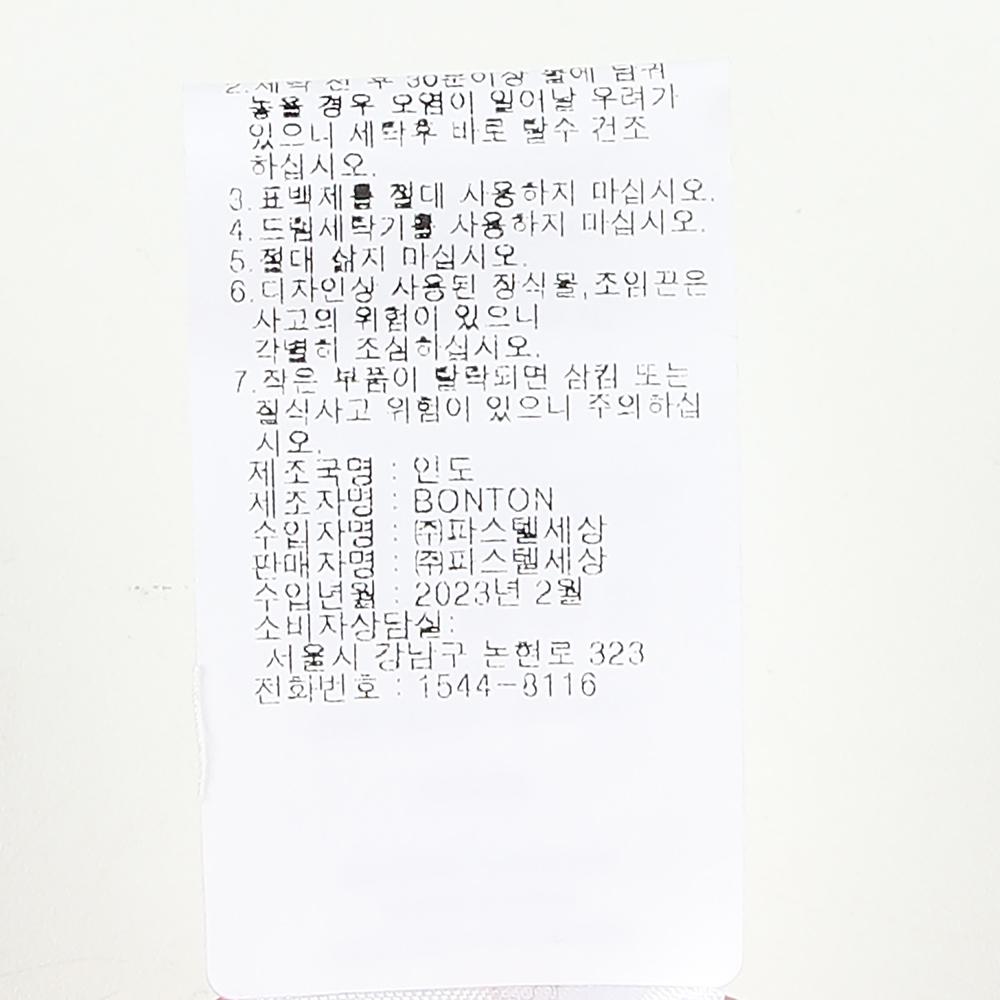 2.세탁 전 후 30분이상 물에 담궈
놓을 경우 오염이 일어날 우려가
있으니 세탁후 바로 탈수 건조
하십시오.
3.표백제를 절대 사용하지 마십시오.
4.드럼세탁기를 사용하지 마십시오.
5.절대 삶지 마십시오.
6.디자인상 사용된 장식물,조임끈은
사고의 위험이 있으니
각별히 조심하십시오.
7.작은 부품이 탈락되면 삼킴 또는
질식사고 위험이 있으니 주의하십
시오.
제조국명 : 인도
제조자명 : BONTON
수입자명 : ㈜파스텔세상
판매자명 : ㈜파스텔세상
수입년월 : 2023년 2월
소비자상담실:
서울시 강남구 논현로 323
전화번호 : 1544-8116